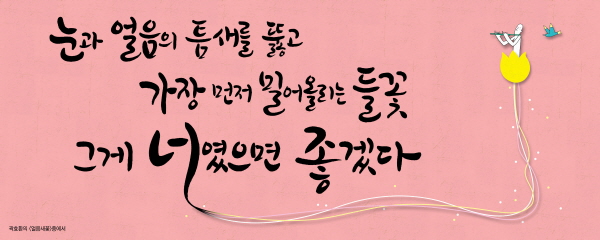 눈과 얼음의 틈새를 뚫고
가장 먼저 밀어올리는 들꽃
그게 너였으면 좋겠다
곽효환의 <얼음새꽃>중에서